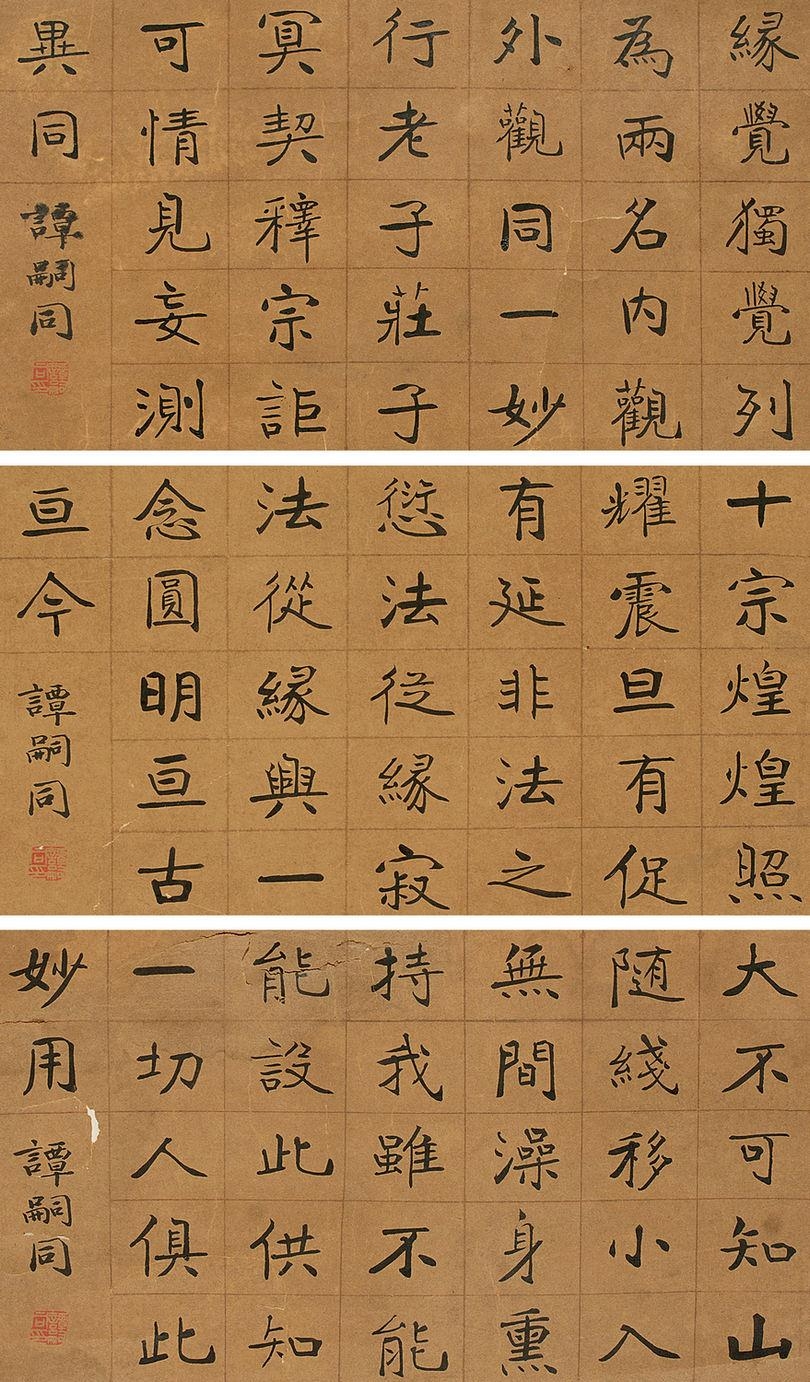 緣覺獨覺列
為兩名內觀
外觀同一妙
行老子莊子
冥契釋宗詎
可情見妄測
異同
譚嗣同
十宗煌煌照
耀震旦有促
有延非法之
愆法從緣寂
法從緣興一
念圓明亘古
亘今
譚嗣同
大不可知山
隨綫移小入
無間澡身熏
持我雖不能
能設此供知
一切人俱此
妙用
譚嗣同